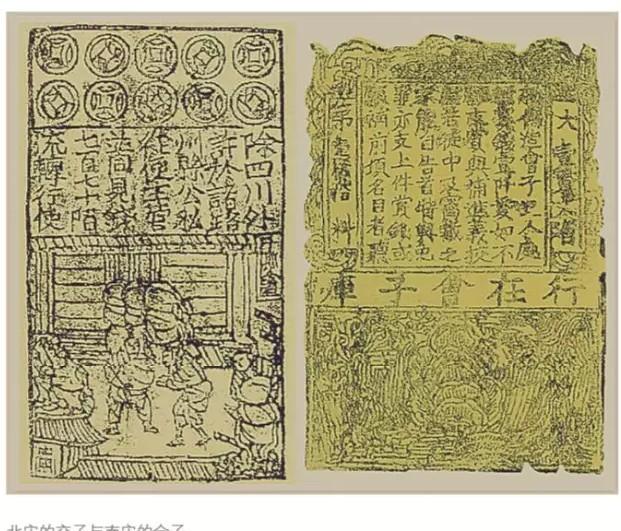 除四川外
許於諸路
州縣公私
從便主管
並同見錢
七百七十陌
流轉行使
大壹貫文省
敕偽造會子犯人處
斬賞錢壹阡貫如不
願支賞與補進義校
尉若徒中及窩藏之
家能自告首特與免
罪亦支上件賞錢或
願補前項名目者聽
第壹百拾料
行在會子庫
北宋的交子与南宋的会子